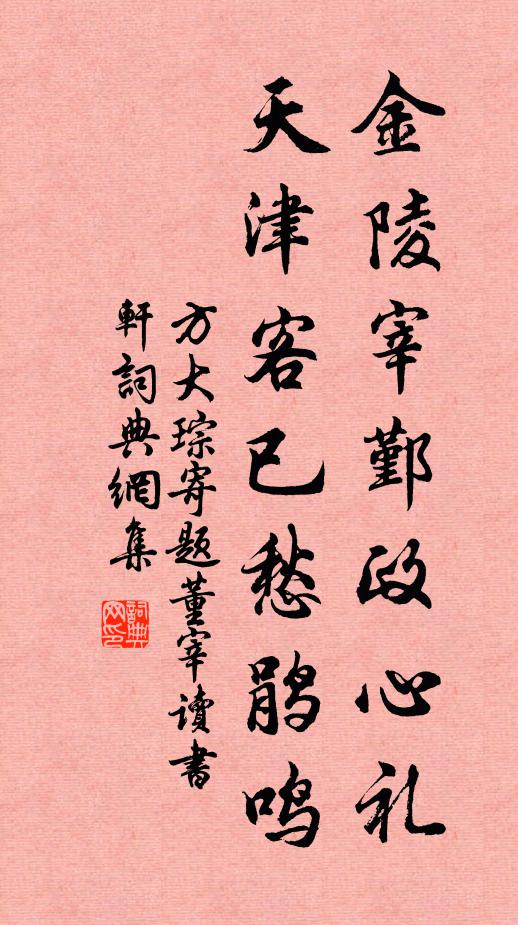 金陵宰鄞政心礼
天津客已愁鹃鸣
方大琮寄题董宰读书
軒詞典網集
詞典
网印